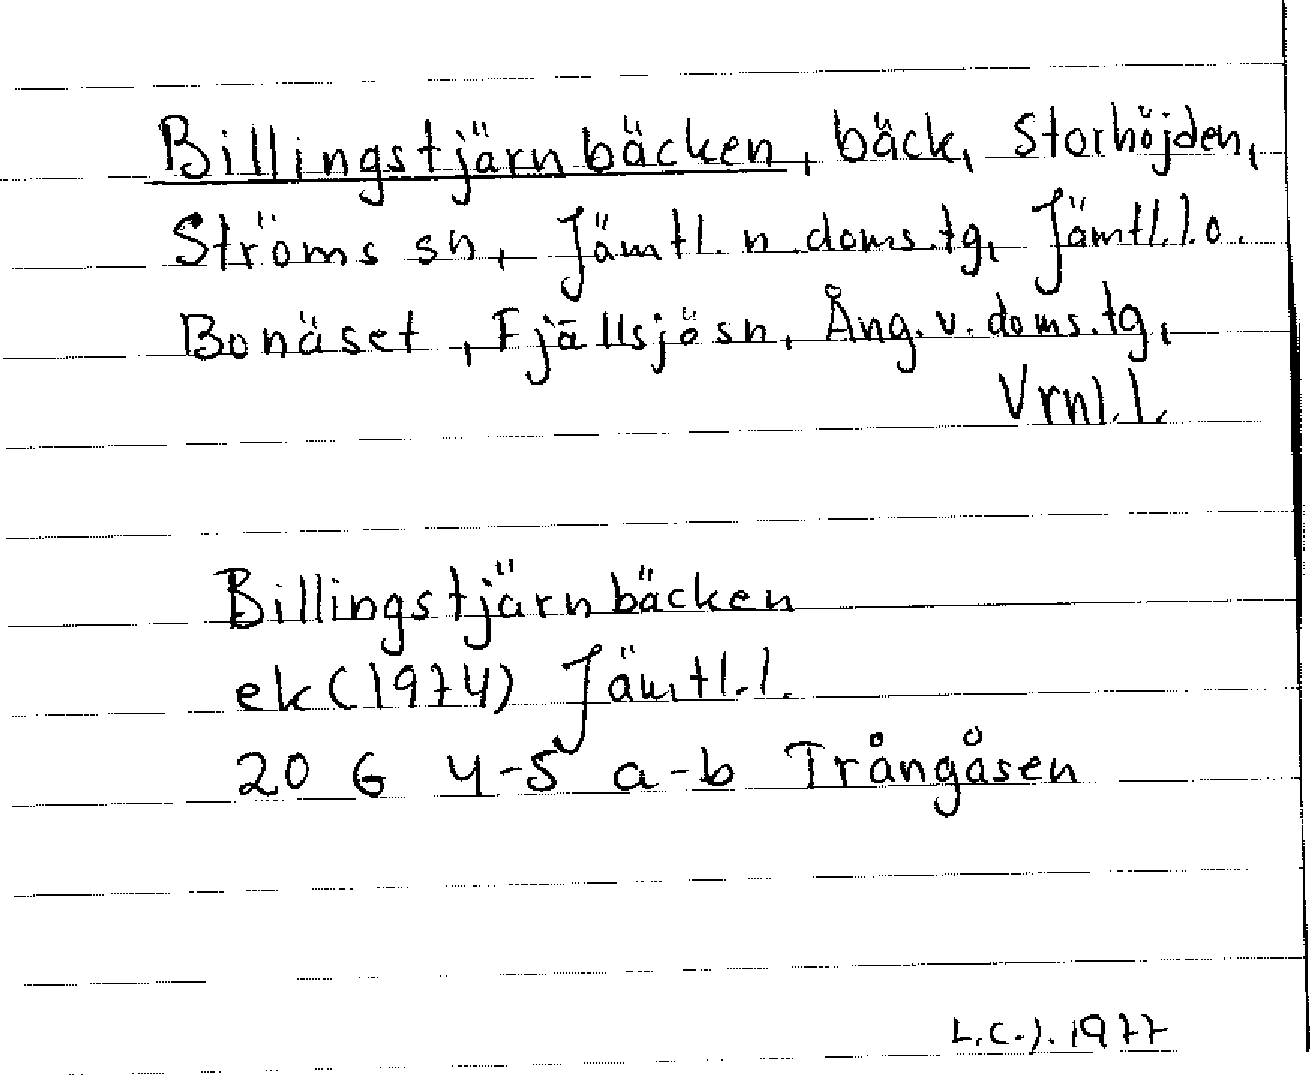 Billingstjärnbäcken, bäck, Storhöjden,
Ströms sn, Jämtl. n. doms.tg, Jämtl.l. o.
Bonäset, Fjällsjö sn, Ång. v. doms.tg,
Vrnl.l.
Billingstjärnbäcken
ek (1974) Jämtl.l.
20 G 4-5 a-b Trångåsen
L.C.J. 1977